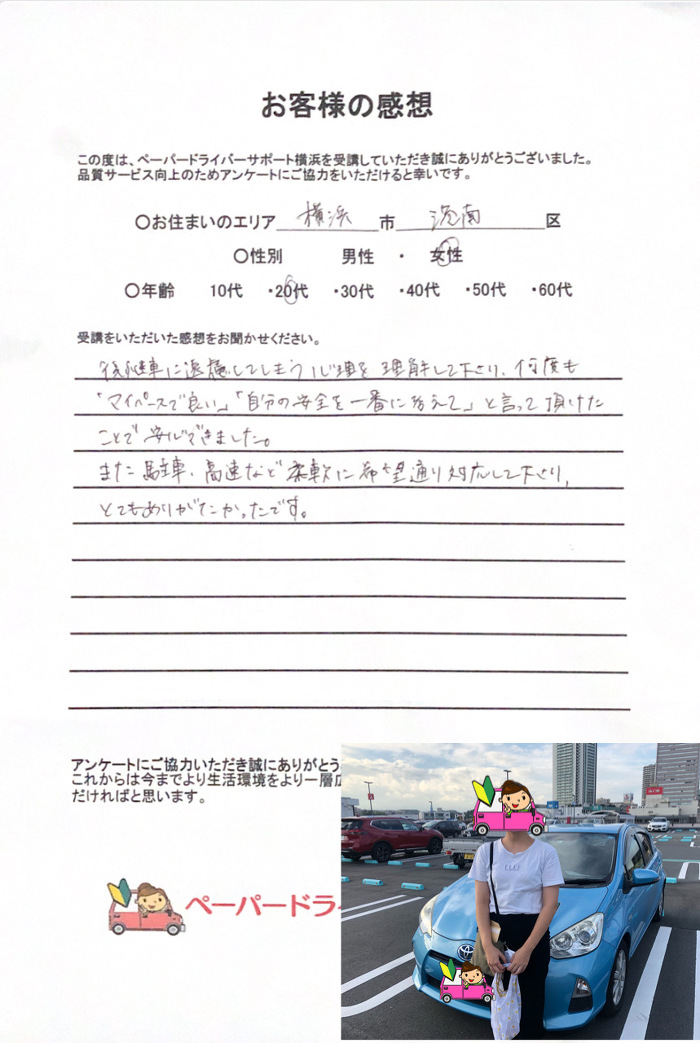 お客様の感想
この度は、ペーパードライバーサポート横浜を受講していただき誠にありがとうございました。
品質サービス向上のためアンケートにご協力をいただけると幸いです。
〇お住まいのエリア 横浜 市 港南 区
〇性別 男性 ・ 女性
〇年齢 10代 ・20代 ・30代 ・40代 ・50代 ・60代
受講をいただいた感想をお聞かせください。
後続車に遠慮してしまう心理を理解して下さり、何度も
「マイペースで良い」「自分の安全を一番に考えて」と言って頂けた
ことで安心できました。
また駐車、高速など柔軟に希望通り対応して下さり、
とてもありがたかったです。
アンケートにご協力いただき誠にありがとう
これからは今までより生活環境をより一層広
だければと思います。
ペーパードライ